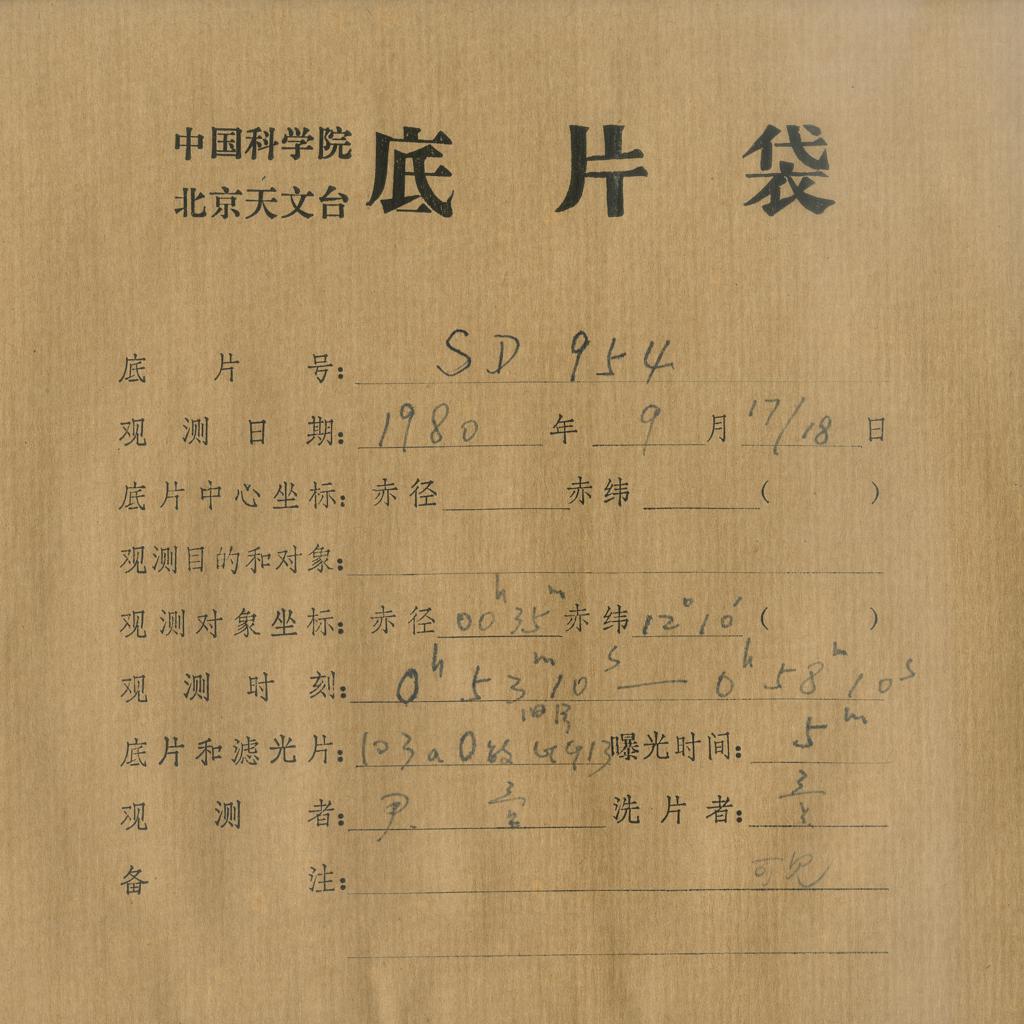 中国科学院
北京天文台
底片袋
底片号: SD 954
观测日期: 1980 年 9 月 17/18 日
底片中心坐标: 赤径 赤纬 ( )
观测目的和对象:
观测对象坐标: 赤径 00 35 赤纬 12° 10′ ( )
观测时刻: 0h 53m 10s — 0h 58m 10s
底片和滤光片: 103aO 曝光时间: 5m
观测者: 尹 洗片者:
备注: 可见